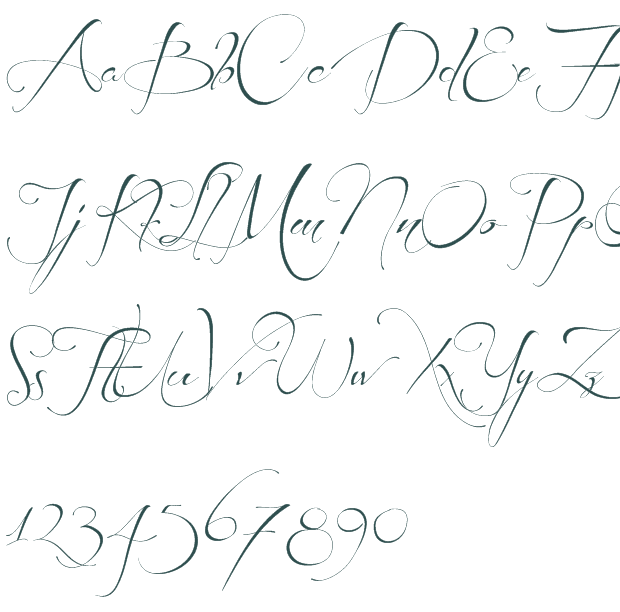 AaBbCcDdEeFf
JjKkLlMmNnOoPpQ
SsTtUuVvWwXxYyZz
1234567890